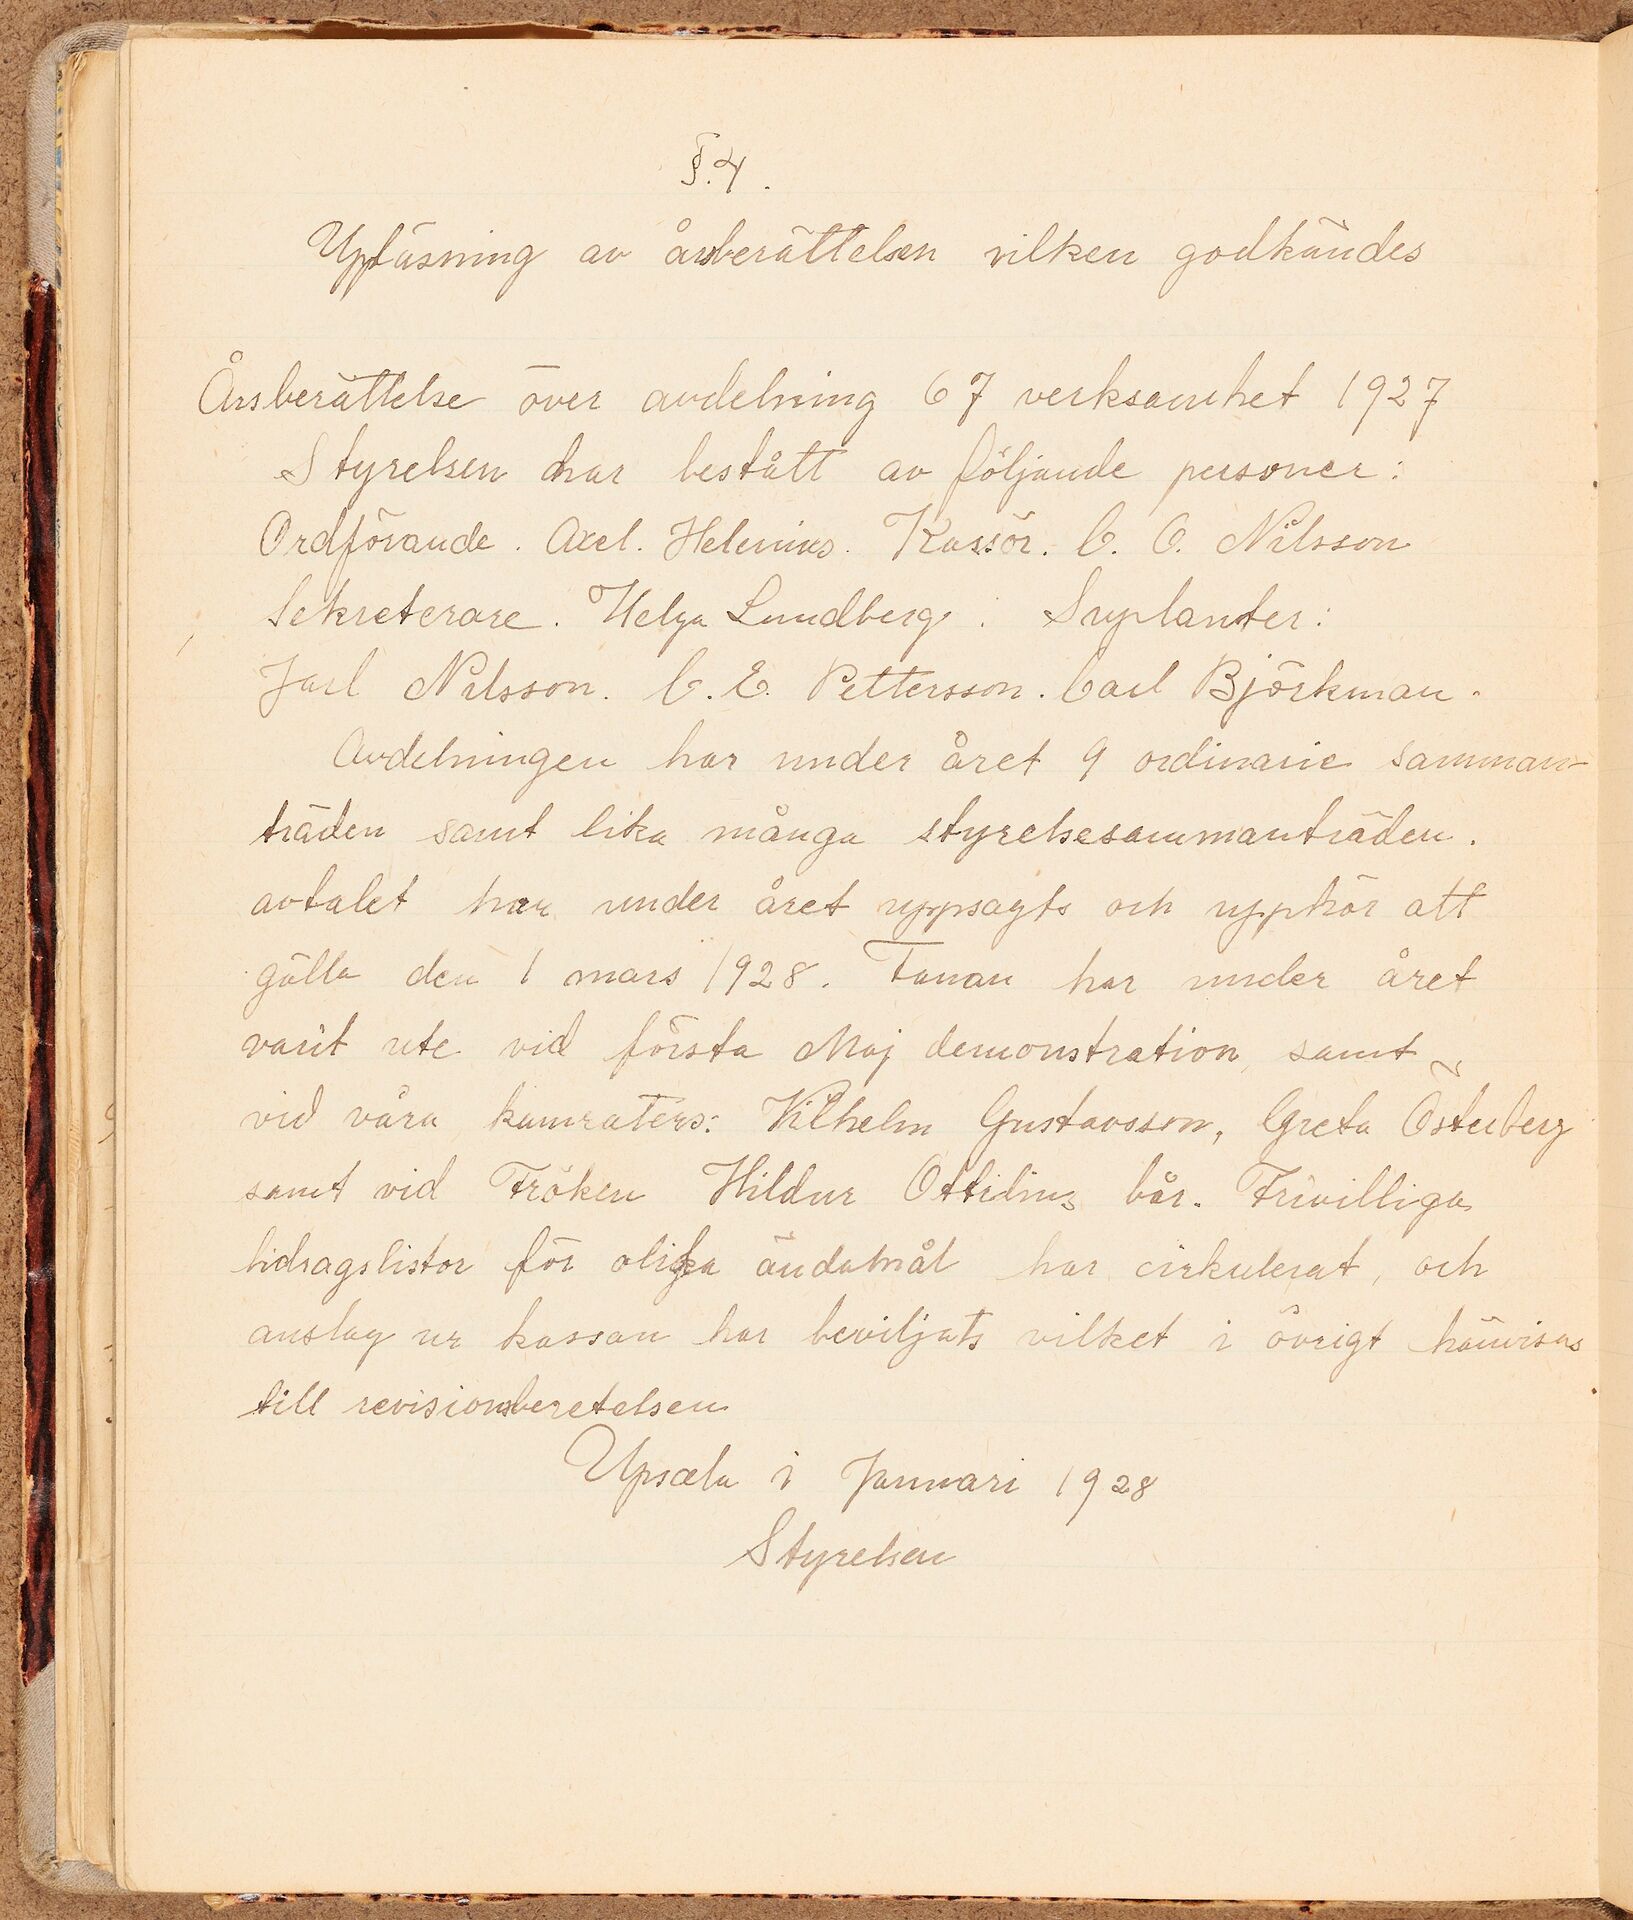 §.4.
Uppläsning av årsberättelsen vilken godkändes
Årsberättelse över avdelning 67 verksamhet 1927
Styrelsen har bestått av följande personer:
Ordförande. Axel. Helenius. Kassör. C. O. Nilsson
Sekreterare. Helga Lundberg. Suplanter:
Jarl Nilsson. C. E. Pettersson. Carl Björkman.
Avdelningen har under året 9 ordinarie samman-
träden samt lika många styrelsesammanträden.
avtalet har under året uppsagts och upphör att
gälla den 1 mars 1928. Fanan har under året
varit ute vid första Maj demonstration, samt
vid våra kamraters: Vilhelm Gustavsson, Greta Österberg
samt vid Fröken Hildur Ottilius bår. Frivilliga
bidragslistor för olika ändamål har cirkulerat, och
anslag ur kassan har beviljats vilket i övrigt hänvisas
till revisionsberetelsen
Upsala i Januari 1928
Styrelsen